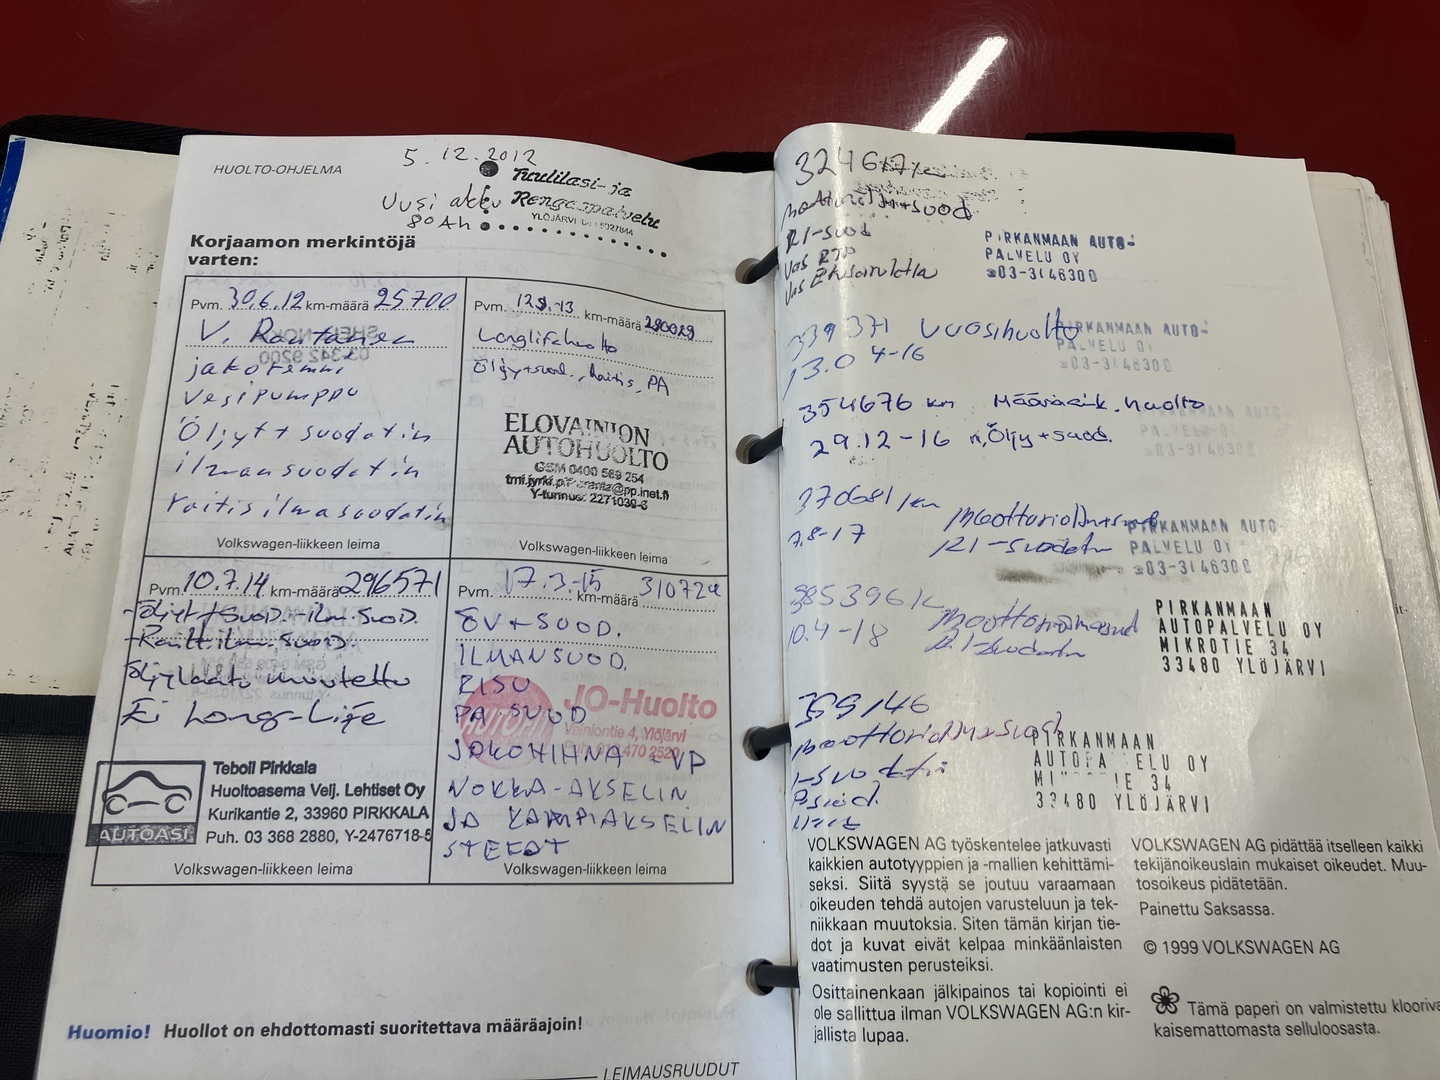 HUOLTO-OHJELMA
5.12.2012
Tuulilasi- ja
Uusi akku Rengaspalvelu
80 Ah
YLÖJÄRVI
Korjaamon merkintöjä
varten:
Pvm. 30.6.12 km-määrä 25700
V. Rautanen
jakoremmi
vesipumppu
Öljyt + suodatin
ilmansuodatin
raitisilmasuodatin
Volkswagen-liikkeen leima
Pvm. km-määrä 280029
Longlifehuolto
Öljy+suod., raitis, PA
ELOVAINION
AUTOHUOLTO
GSM 0400 569 254
Y-tunnus: 2271039-6
Volkswagen-liikkeen leima
Pvm. 10.7.14 km-määrä 296571
Öljyt + SUOD. ilm. SUOD.
Rait. ilm. SUOD.
Öljylaatu muutettu
Ei Long-Life
AUTOASI
Teboil Pirkkala
Huoltoasema Velj. Lehtiset Oy
Kurikantie 2, 33960 PIRKKALA
Puh. 03 368 2880, Y-2476718-5
Volkswagen-liikkeen leima
Pvm. 17.3.15 km-määrä 310724
ÖV + SUOD.
ILMANSUOD.
RISU
PA SUOD
JO-Huolto
Vainiontie 4, Ylöjärvi
JAKOHIHNA + VP
NOKKA-AKSELIN
JA KAMPIAKSELIN
STEFAT
Volkswagen-liikkeen leima
Huomio! Huollot on ehdottomasti suoritettava määräajoin!
LEIMAUSRUUDUT
324617
Moottoriöljy+suod
RI-suod
PIRKANMAAN AUTO-
PALVELU OY
☎03-3146300
339371 Vuosihuolto
13.04-16
PIRKANMAAN AUTO-
PALVELU OY
☎03-3146300
354676 km Määräaik. huolto
29.12-16 m,Öljy+suod.
370681 km
7.8-17
Moottoriöljy+suod
RI-suodatin
PIRKANMAAN AUTO
PALVELU OY
☎03-3146300
385396 k
10.4-18
Moottoriöljy+suod
RI-suodatin
PIRKANMAAN
AUTOPALVELU OY
MIKROTIE 34
33480 YLÖJÄRVI
Moottoriöljy+suod
I-suodatin
PIRKANMAAN
AUTOPALVELU OY
MIKROTIE 34
33480 YLÖJÄRVI
VOLKSWAGEN AG työskentelee jatkuvasti
kaikkien autotyyppien ja -mallien kehittämi-
seksi. Siitä syystä se joutuu varaamaan
oikeuden tehdä autojen varusteluun ja tek-
niikkaan muutoksia. Siten tämän kirjan tie-
dot ja kuvat eivät kelpaa minkäänlaisten
vaatimusten perusteiksi.
Osittainenkaan jälkipainos tai kopiointi ei
ole sallittua ilman VOLKSWAGEN AG:n kir-
jallista lupaa.
VOLKSWAGEN AG pidättää itselleen kaikki
tekijänoikeuslain mukaiset oikeudet. Muu-
tosoikeus pidätetään.
Painettu Saksassa.
© 1999 VOLKSWAGEN AG
Tämä paperi on valmistettu klooriva
kaisemattomasta selluloosasta.